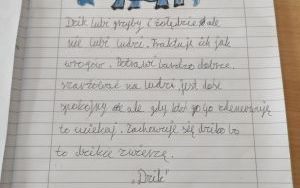 Dzik lubi grzyby i żołędzie, ale
nie lubi ludzi. Traktuje ich jak
wrogów. Potrawi bardzo dobrze
szarżować na ludzi jest dość
spokojny ale, gdy ktoś go zdenerwuje
to uciekaj. Zachowuje się dziko bo
to dzikie zwierzę.
"Dzik"